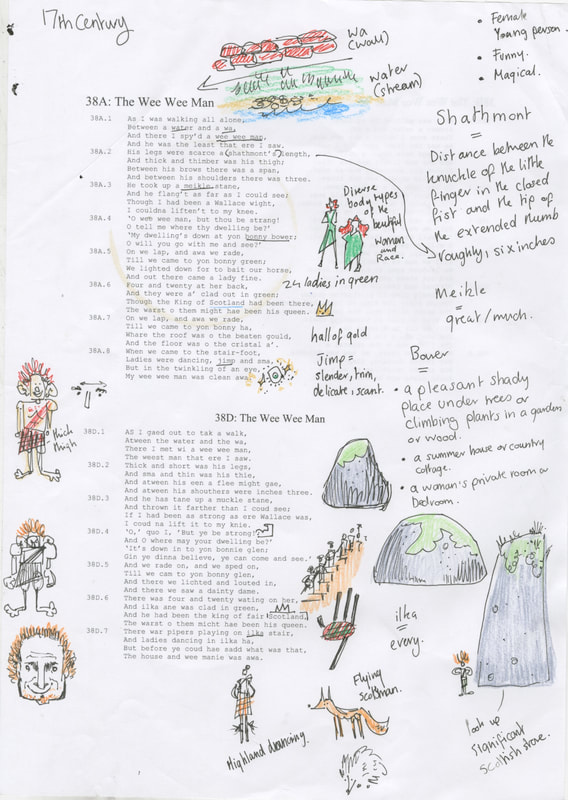 17th Century
wa
(wall)
water
(stream)
• Female
Young person.
• Funny.
• Magical.
38A: The Wee Wee Man
38A.1 As I was walking all alone,
Between a water and a wa,
And there I spy'd a wee wee man,
And he was the least that ere I saw.
38A.2 His legs were scarce a shathmont's length,
And thick and thimber was his thigh;
Between his brows there was a span,
And between his shoulders there was three.
38A.3 He took up a meikle stane,
And he flang't as far as I could see;
Though I had been a Wallace wight,
I couldna liften't to my knee.
38A.4 'O wee wee man, but thou be strang!
O tell me where thy dwelling be?'
'My dwelling's down at yon bonny bower;
O will you go with me and see?'
38A.5 On we lap, and awa we rade,
Till we came to yon bonny green;
We lighted down for to bait our horse,
And out there came a lady fine.
38A.6 Four and twenty at her back,
And they were a' clad out in green;
Though the King of Scotland had been there,
The warst o them might hae been his queen.
38A.7 On we lap, and awa we rade,
Till we came to yon bonny ha,
Whare the roof was o the beaten gould,
And the floor was o the cristal a'.
38A.8 When we came to the stair-foot,
Ladies were dancing, jimp and sma,
But in the twinkling of an eye,
My wee wee man was clean awa
Diverse
body types
of the
beautiful
women
and
Race.
24 ladies in green
hall of gold
Jimp =
slender, trim,
delicate, scant.
Shathmont
=
Distance between the
knuckle of the little
finger in the closed
fist and the tip of
the extended thumb
roughly, six inches
Meikle
=
great/much.
Bower
=
• a pleasant shady
place under trees or
climbing plants in a garden
or wood.
• a summer house or country
cottage.
• a woman's private room or
bedroom.
thick
thigh
38D: The Wee Wee Man
38D.1 AS I gaed out to tak a walk,
Atween the water and the wa,
There I met wi a wee wee man,
The weest man that ere I saw.
38D.2 Thick and short was his legs,
And sma and thin was his thie,
And atween his een a flee might gae,
And atween his shouthers were inches three.
38D.3 And he has tane up a muckle stane,
And thrown it farther than I coud see;
If I had been as strong as ere Wallace was,
I coud na lift it to my knie.
38D.4 'O,' quo I, 'But ye be strong!
And O where may your dwelling be?'
'It's down in to yon bonnie glen;
Gin ye dinna believe, ye can come and see.'
38D.5 And we rade on, and we sped on,
Till we cam to yon bonny glen,
And there we lichted and louted in,
And there we saw a dainty dame.
38D.6 There was four and twenty wating on her,
And ilka ane was clad in green,
And he had been the king of fair Scotland,
The warst o them micht hae been his queen.
38D.7 There war pipers playing on ilka stair,
And ladies dancing in ilka ha,
But before ye coud hae sadd what was that,
The house and wee manie was awa.
ilka
=
every.
Highland dancing.
Flying
Scotsman.
look up
significant
Scottish stove.